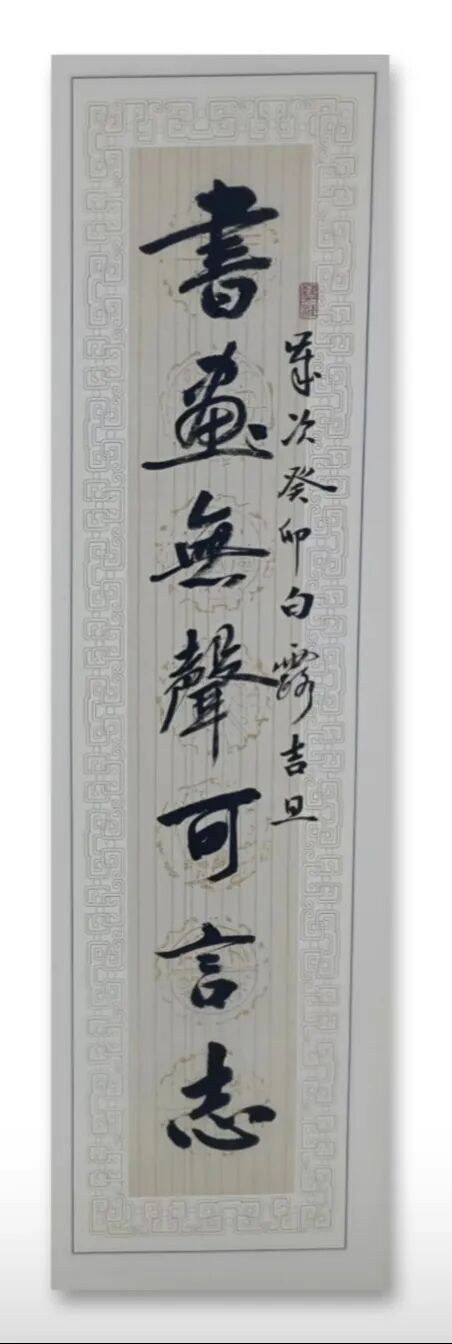 歲次癸卯白露吉旦
書畫無聲可言志